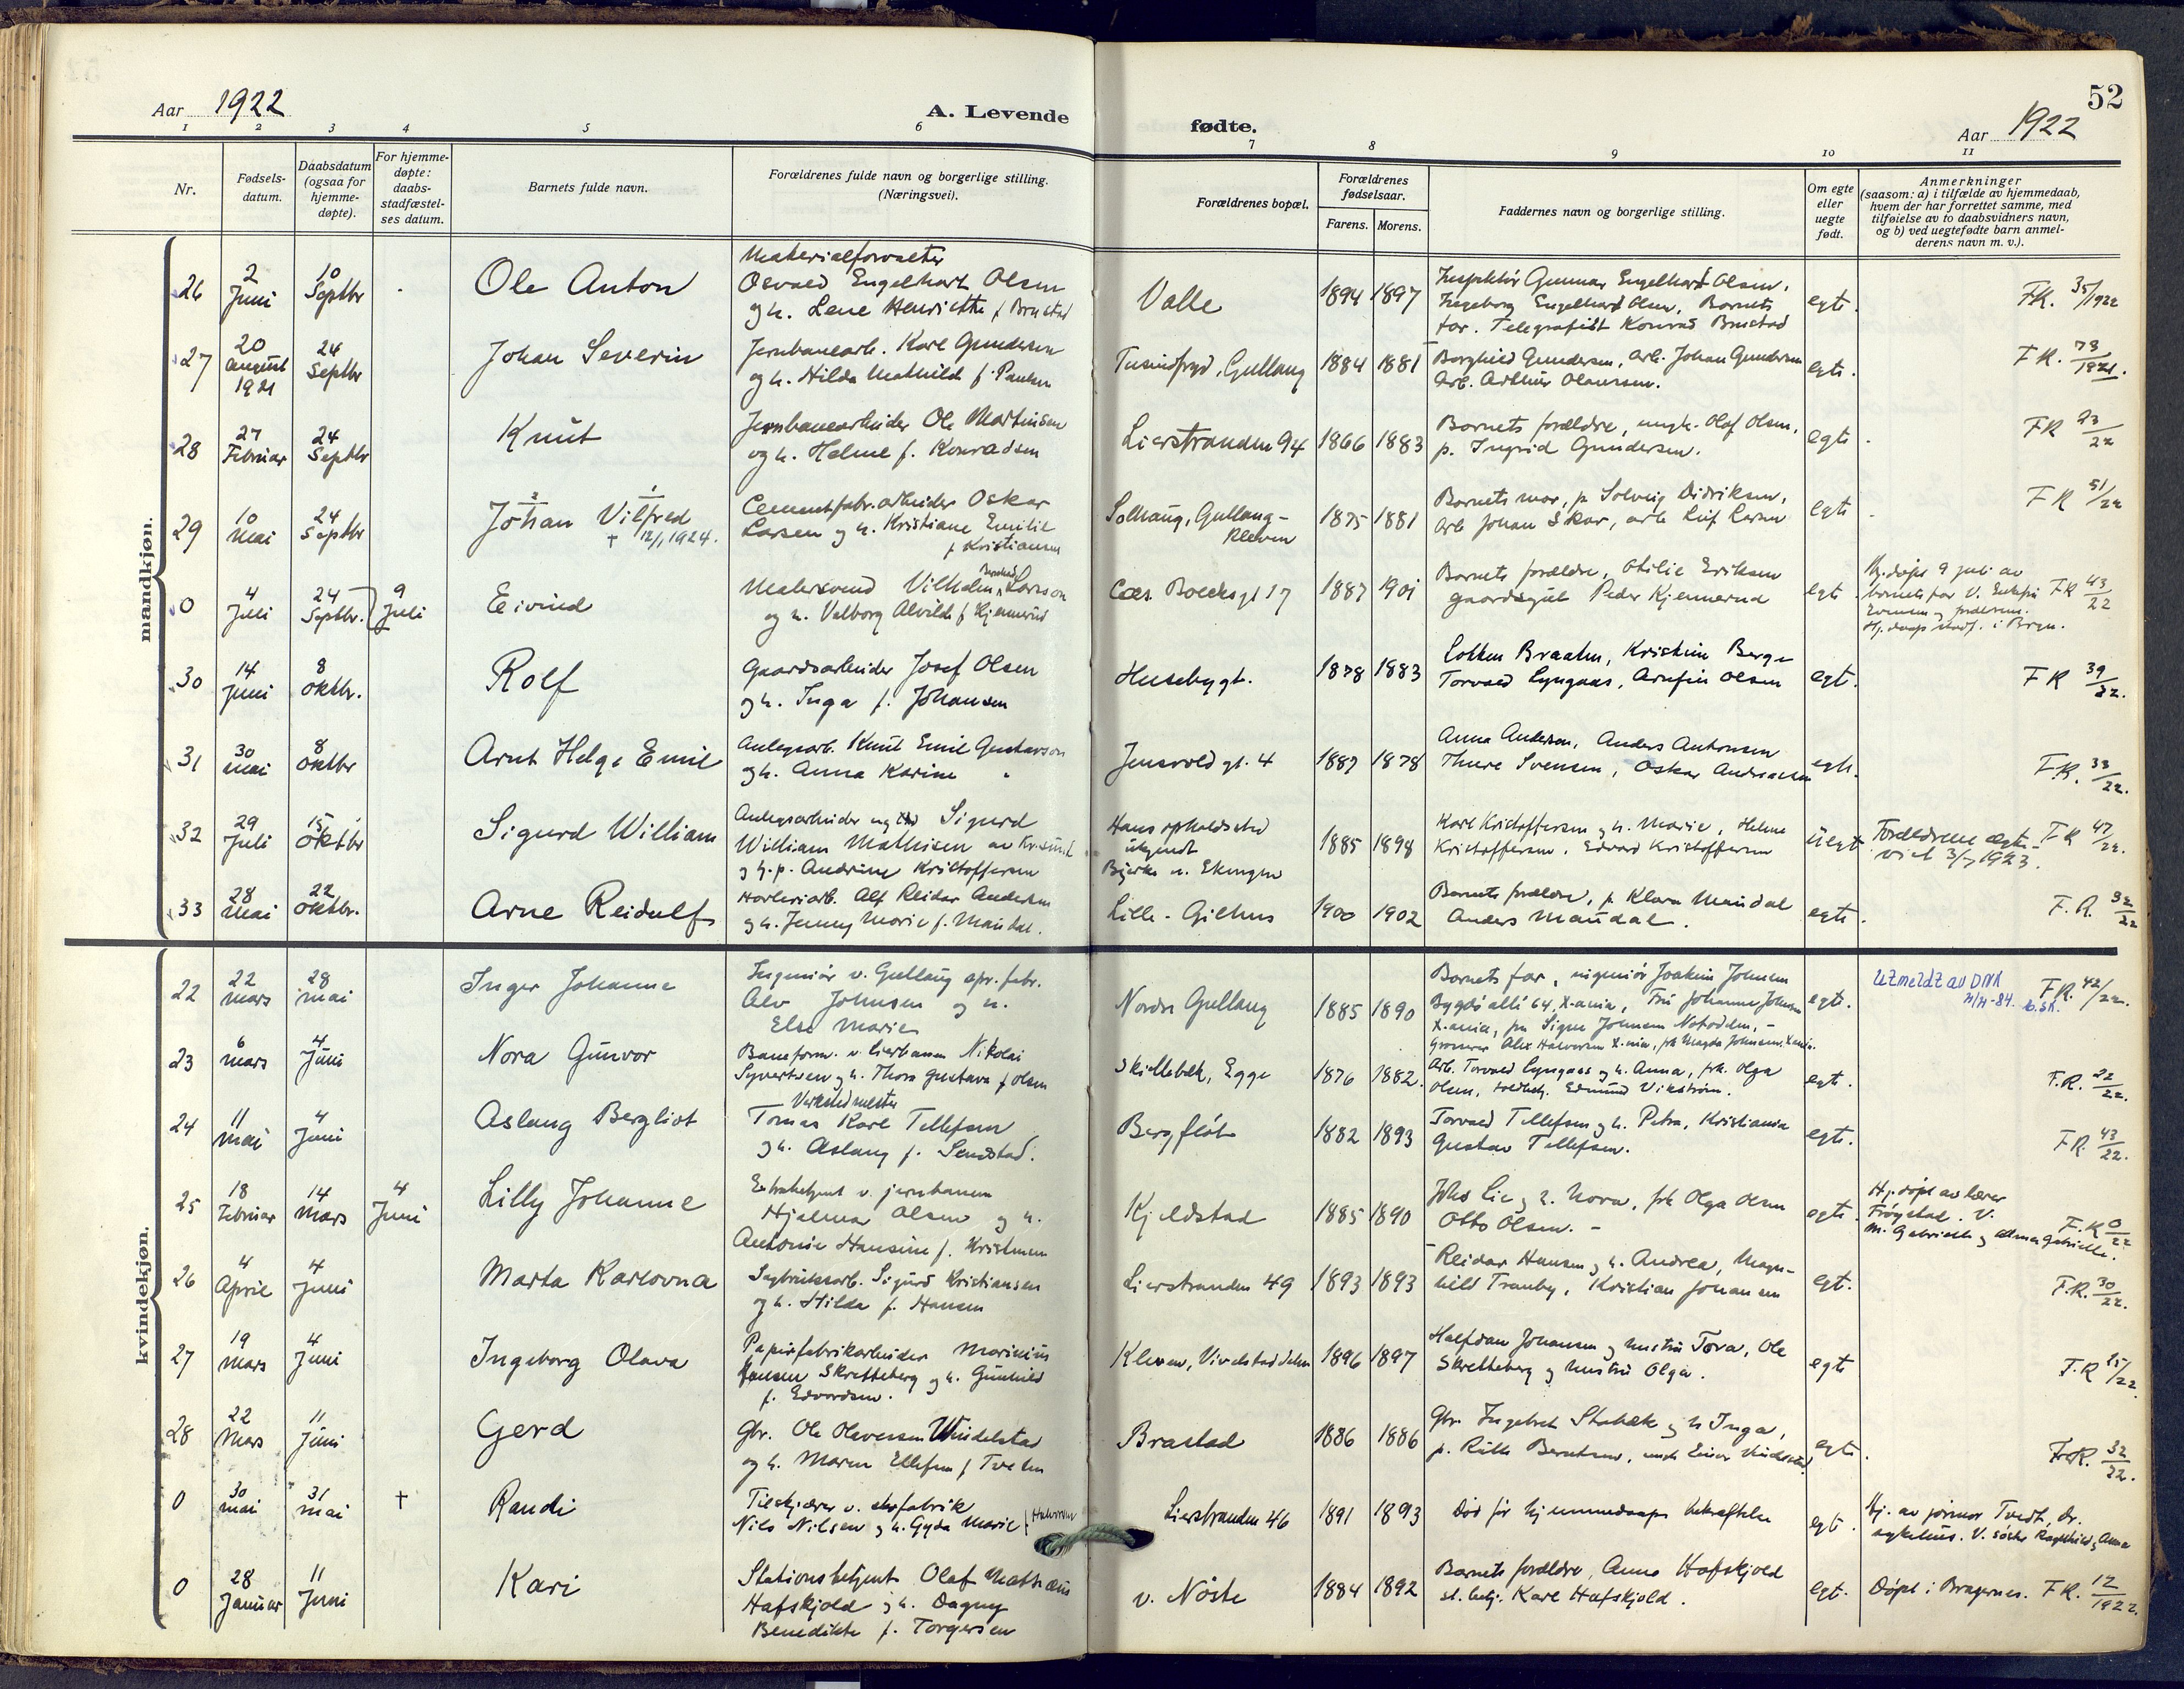 52
Aar 1922
A. Levende fødte.
Aar 1922
1 2 3 4 5 6 7 8 9 10 11
Nr.
Fødsels-
datum.
Daabsdatum
(ogsaa for
hjemme-
døpte).
For hjemme-
døpte:
daabs-
stadfæstel-
ses datum.
Barnets fulde navn.
Forældrenes fulde navn og borgerlige stilling.
(Næringsvei).
Forældrenes bopæl.
Forældrenes
fødselsaar.
Farens. Morens.
Faddernes navn og borgerlige stilling.
Om egte
eller
uegte
født.
Anmerkninger
(saasom: a) i tilfælde av hjemmedaab,
hvem der har forrettet samme, med
tilføielse av to daabsvidners navn,
og b) ved uegtefødte barn anmel-
derens navn m. v.).
mandkjøn.
26
2 Juni
10 Septbr
Ole Anton
Materialforvalter
Osvald Engelhart Olsen
og h. Lene Henriette f. Brustad
Valle
1894 1897
Inspektør Gunnar Engelhart Olsen,
Ingeborg Engelhart Olsen, Barnets
far. Telegrafist Konrad Brustad
egte.
F.R. 35/1922
27
20 August 1921
24 Septbr
Johan Severin
Jernbanearb. Karl Gundersen
og h. Hilda Mathilde f. Paulsen
Tusindfryd, Gullaug
1884 1881
Borghild Gundersen, arb. Johan Gundersen
Arb. Arthur Olaussen.
egte.
F.R. 73/1921.
28
27 Februar
24 Septbr
Knut
Jernbanearbeider Ole Martinsen
og h. Helene f. Konradsen
Lierstranden 94
1866 1883
Barnets forældre, ungk. Olaf Olsen,
p. Ingrid Gundersen.
egte.
F R 23/22
29
10 Mai
24 Septbr
Johan Vilfred
† 12/1 1924.
Cementfabr.arbeider Oskar
Larsen og h. Kristiane Emilie
f. Kristiansen
Solhaug, Gullaug-
kleven
1875 1881
Barnets mor, p. Solveig Didriksen,
arb Johan Skar, arb Leif Larsen
egte.
F R 51/22
0
4 Juli
24 Septbr.
9 Juli
Eivind
Malersvend Vilhelm Larsson
og h. Valborg Alvilde f Kjennerud
Cær Boecks gt 17
1887 1901
Barnets forældre, Otilie Eriksen
gaardsgut Peder Kjennerud
egte.
Hj.døpt 9 juli av
barnets far
F R 43/22
30
14 Juni
8 Oktbr.
Rolf
Gaardsarbeider Josef Olsen
og h. Inga f. Johansen
Husebygt.
1878 1883
Lotten Braathe, Kristine Berge
Torvald Lyngaas, Arnfin Olsen
egte.
F R 39/22.
31
30 Mai
8 Oktbr
Arnt Helge Emil
Anlegsarb. Knut Emil Gustavson
og h. Anna Karine "
Jensvoldgt. 4
1887 1878
Anna Andersen, Anders Antonsen
Thure Svensen, Oskar Andreassen
egte.
F.R. 33/22.
32
29 Juli
15 Oktbr
Sigurd William
Anlegsarbeider ug Sigurd
William Mathisen av Kr.sund
og p. Andrine Kristoffersen
Hans opholdsted
ukjendt
Bjerke n. Ekengen
1885 1898
Karl Kristoffersen og h. Marie, Helene
Kristoffersen, Edvard Kristoffersen
uegt
Forældrene egte-
viet 3/7 1923.
F R 47/22.
33
28 Mai
22 Oktbr.
Arne Reidulf
Høvleriarb. Alf Reidar Andersen
og h. Jenny Marie f. Maudal.
Lille-Gilhus
1900 1902
Barnets forældre, p. Klara Maudal
Anders Maudal.
egte.
F. R. 32/22
kvindekjøn.
22
22 Mars
28 Mai
Inger Johanne
Ingeniør v. Gullaug spr. fabr.
Alv Johnsen og h.
Else Marie
Nordre Gullaug
1885 1890
Barnets far, ingeniør Joakim Johnsen
Bygdø allé 64, X.ania, Fru Johanne Johnsen
X.ania, fru Signe Johnsen Notodden, -
Grosserer Alex Halvorsen X.ania, frk Magda Johnsen X.ania.
egte.
Utmeldt av DNK
F.R. 42/22.
23
6 Mars
4 Juni
Nora Gunvor
Baneform. v. Lierbanen Nikolai
Syvertsen og h. Thora Gustava f Olsen
Skillebæk, Egge
1876 1882.
Arb. Torvald Lyngaas og h. Anna, frk. Olga
Olsen, Edmund Vikstrøm.
egte.
F.R. 22/22.
24
11 Mai
4 Juni
Aslaug Bergliot
Verkstedmester
Tomas Karl Tellefsen
og h. Aslaug f. Sendstad.
Bergfløt
1882 1893
Torvald Tellefsen og h. Petra, Kristiania
Gustav Tellefsen.
egte.
F R. 43/22.
25
18 Februar
14 Mars
4 Juni
Lilly Johanne
Extrabetjent v. jernbanen
Hjalmar Olsen og h.
Antonie Hansine f. Kristensen
Kjeldstad
1885 1890
Johs Lie og h. Nora, frk Olga Olsen
Otto Olsen. -
egte.
Hj.døpt av lærer
Frøystad. V.
M. Gabrielle og Alma Gabrielle.
F.R 0/22
26
4 April
4 Juni
Marta Karlovna
Sagbruksarb. Sigurd Kristiansen
og h. Hilda f. Hansen
Lierstranden 49
1893 1893
Reidar Hansen og h. Andrea, Magn-
hild Tranby, Kristian Johansen
egt.
F.R. 30/22.
27
19 Mars
4 Juni
Ingeborg Olava
Papirfabrikarbeider Marinius
Jensen Skretteberg og h. Gunhild
f. Edvardsen.
Kleven, Vivelstaddalen
1896 1897
Halfdan Johansen og hustru Tora, Ole
Skretteberg og hustru Olga.
egte
F.R 15/22.
28
22 Mars
11 Juni
Gerd
Gbr. Ole Olavesen Windelstad
og h. Maren Ellefsen f Tveten
Brastad
1886 1886
Gbr. Ingebret Stabæk og h Inga,
p. Ruth Berntsen, ungk Einar
egte.
F.R. 32/22.
0
30 Mai
31 Mai
†
Randi
Tilskjærer v. skofabrik
Nils Nilsen og h. Gyda Marie f Halvorsen
Lierstranden 46
1891 1893
Død før hjemmedaaps bekræftelse
egt.
Hj. av jormor Tvedt, Dr.
sykehus. V. søstr Ragnhild og Anna
0
28 Januar
11 Juni
Kari
Stationsbetjent Olaf Mathæus
Hafskjold og h. Dagny
Benedikte f. Torgersen
v. Nøste
1884 1892
Barnets forældre, Anna Hafskjold
st. betj. Karl Hafskjold.
egt.
Døpt i Bragernes. F R. 12/1922.